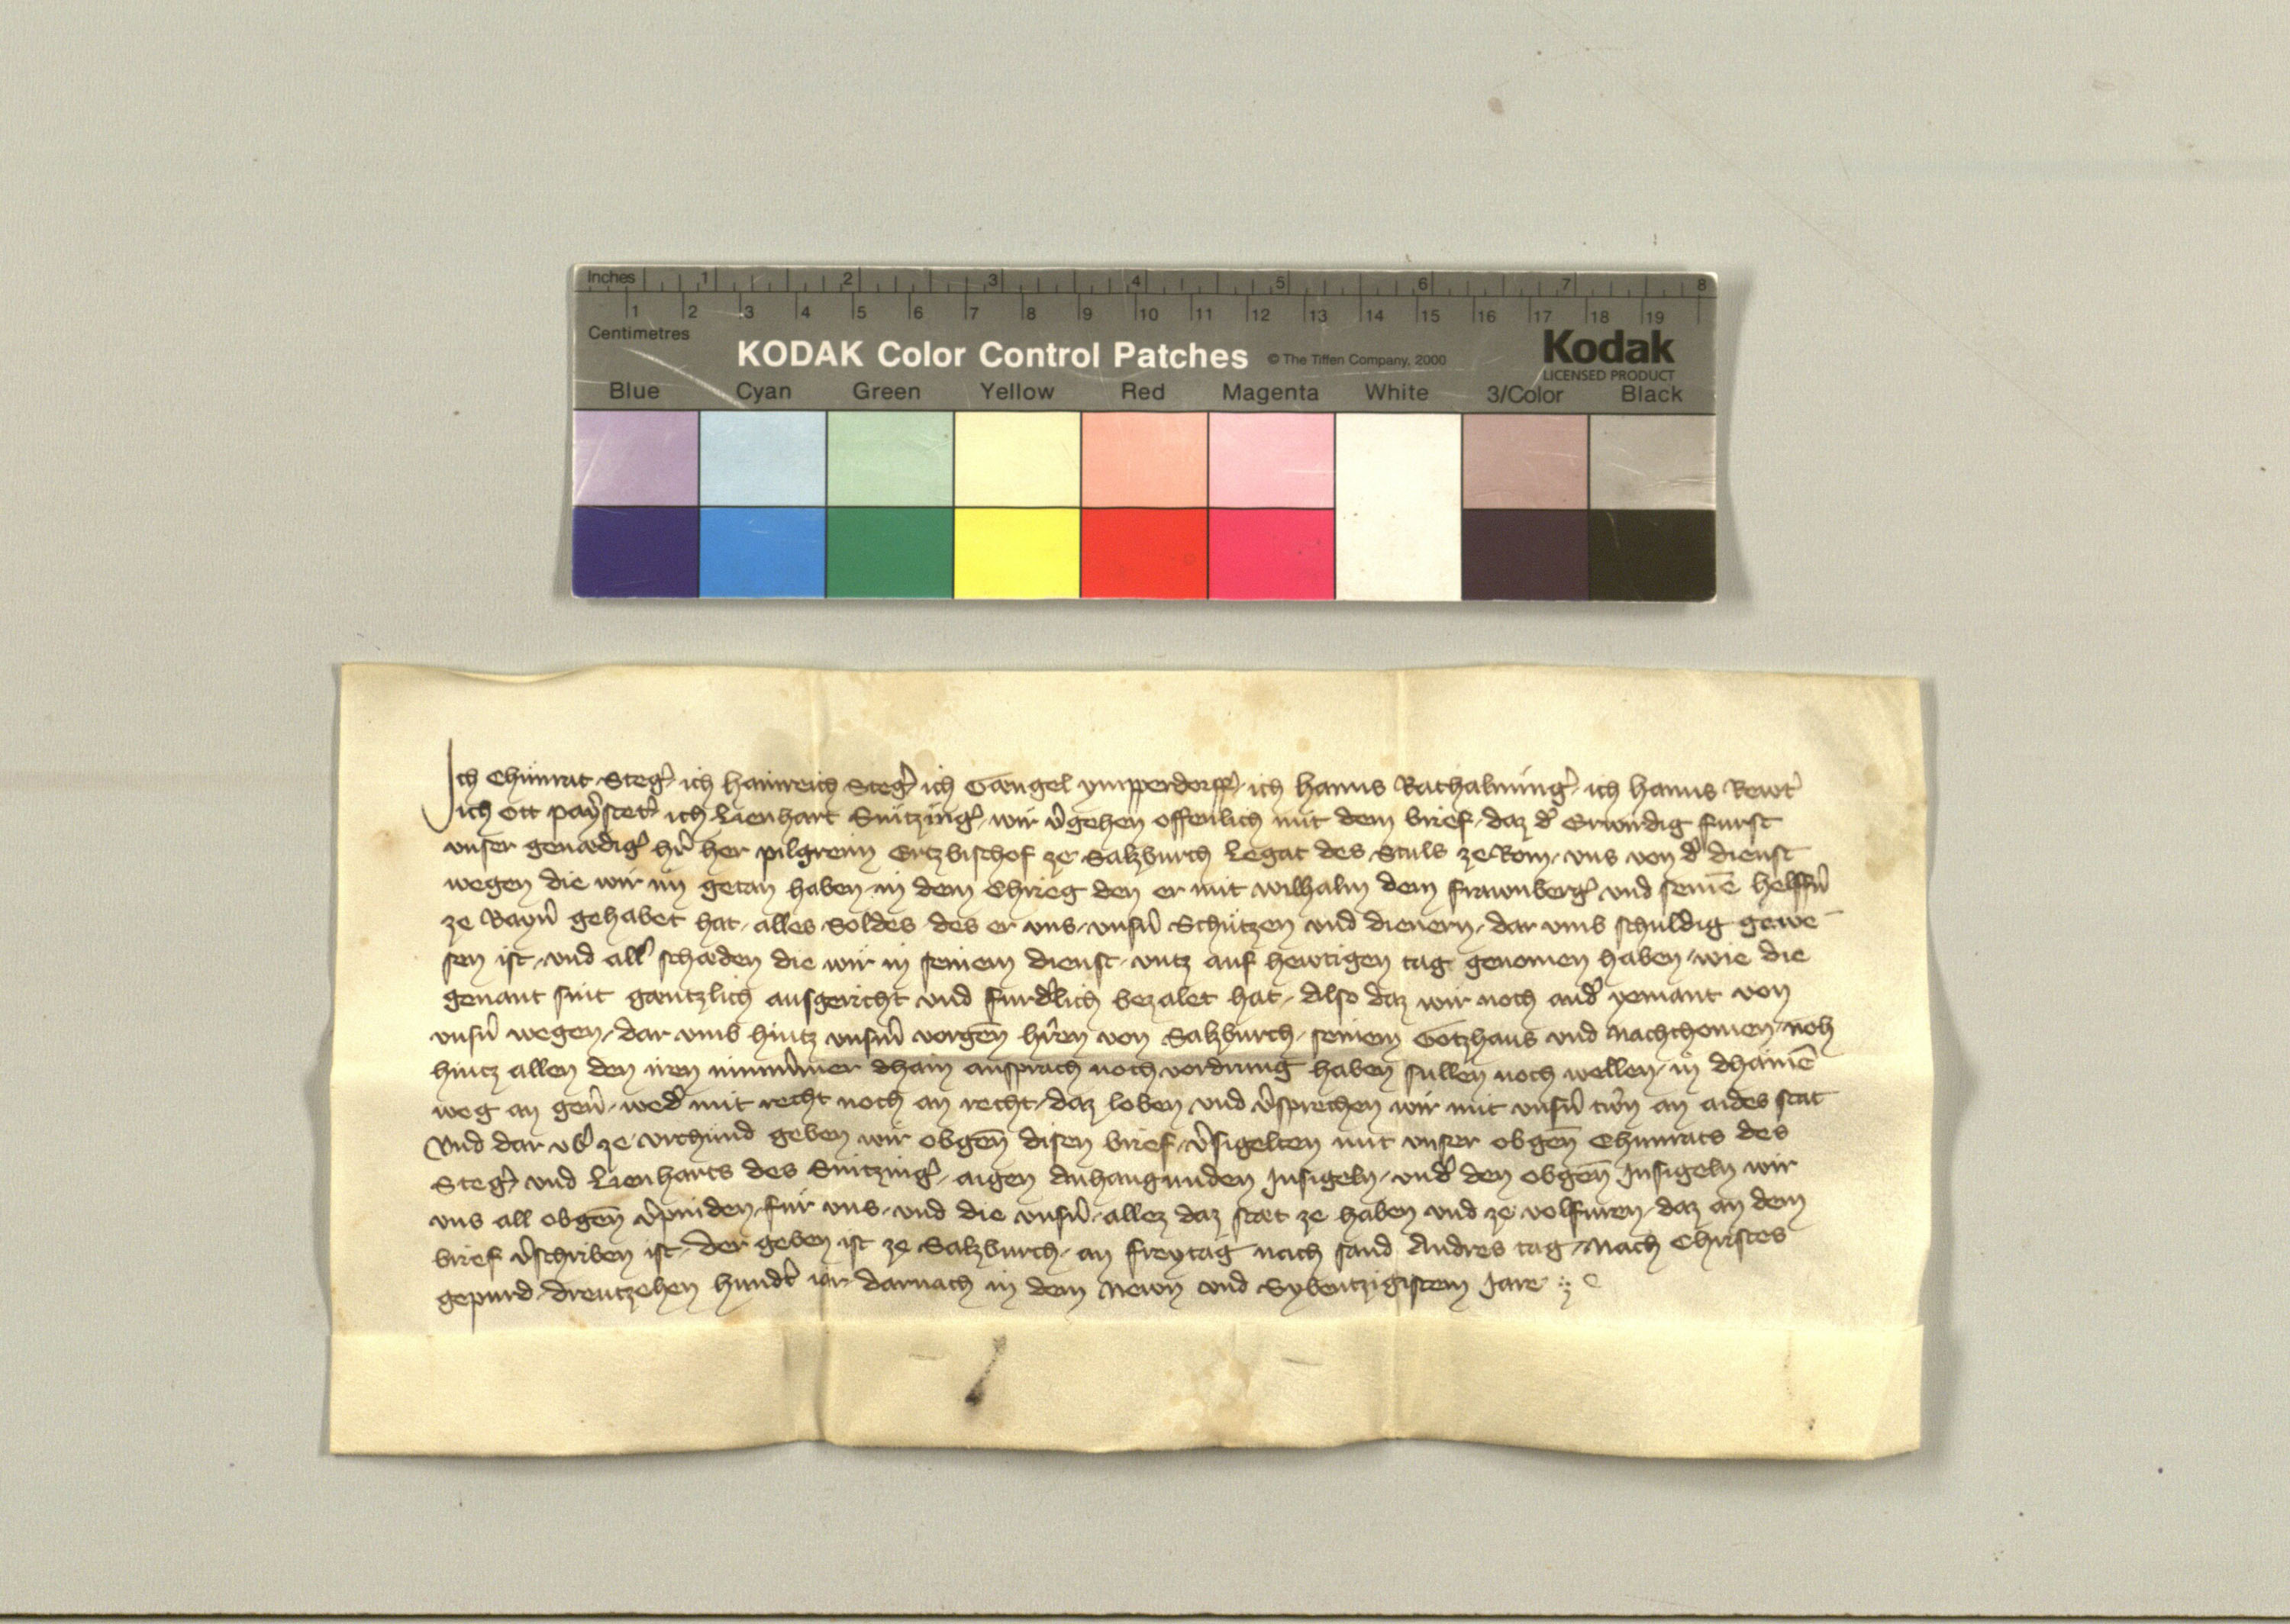 Inches 1 2 3 4 5 6 7 8
1 2 3 4 5 6 7 8 9 10 11 12 13 14 15 16 17 18 19
Centimetres
KODAK Color Control Patches © The Tiffen Company, 2000 Kodak
LICENSED PRODUCT
Blue Cyan Green Yellow Red Magenta White 3/Color Black
Ich Chunrat Steg̉ ich Hainreich Steg̉ ich Gängel ympperdorff̉ ich Hanns Rathalming̉ ich Hanns Rewt̉
ich Ott payſtet̉ ich Lienhart Snitzing̉ wir v̉gehen offenlich mit dem brief daz d̉ Erwirdig furſt
vnſer genædig̉ hr̉ her pilgreim Ertzbiſchof ze Salzburch Legat des Stuls ze Rom vns von d̉ dienſt
wegen die wir im getan haben in dem Chrieg den er mit wilhalm dem frawnberg̉ vnd ſeinē helffn̉
ze Bayrn̉ gehabet hat alles Soldes des er vns vnſn̉ Schützen vnd dienern dar vmb ſchuldig gewe
ſen iſt vnd all̉ ſchæden die wir in ſeinem dienſt vntz auf hewtigen tag genomen haben wie die
genant ſint gæntzlich auſgericht vnd furd̉lich bezalet hat Alſo daz wir noch and̉ yemant von
vnſn̉ wegen dar vmb hintz vnſm̉ vorgēn hr̉en von Salzburch ſeinem Gotzhaus vnd Nachchomen noh
hintz allen den iren nimm̉mer dhain anſprach noch vordrung haben ſullen noch wellen in dhainē
weg an gen̉ wed̉ mit recht noch an recht daz loben vnd v̉ſprechen wir mit vnſn̉ trŵn an aides ſtat
Vnd dar vb̉ ze vrchund geben wir obgēn diſen brief v̉ſigelten mit vnſer obgēn Chunrats des
Steg̉ vnd Lienharts des Snitzing̉ aigen Anhangunden Inſigeln vnd̉ den obgēn Inſigeln wir
vns all obgēn v̉pinden für vns vnd die vnſn̉ allez daz ſtæt ze haben vnd ze volfuren daz an dem
brief v̉ſchriben iſt Der geben iſt ze Salzburch an freytag nach ſand Andres tag Nach Chriſtes
gepurd Dreutzehen hundt̉ iar darnach in dem Newn vnd Sybentzigiſtem Jare